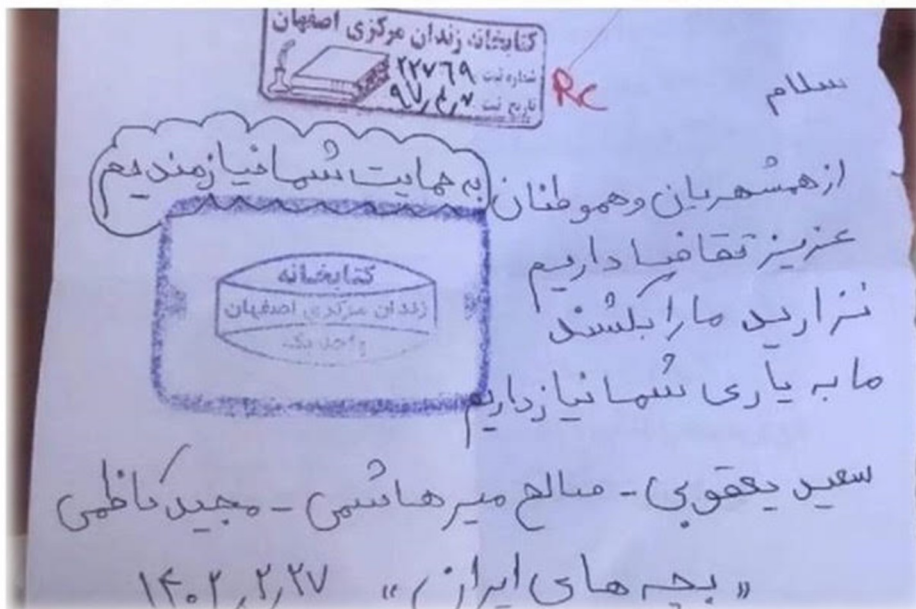 کتابخانه زندان مرکزی اصفهان
شماره ثبت ۲۲۷۶۹
تاریخ ثبت
RC
سلام
از همشهریان و هموطنان
به حمایت شما نیازمندیم
عزیز تقاضا داریم
نزارید ما را بکشند
ما به یاری شما نیاز داریم
کتابخانه
زندان مرکزی اصفهان
واحد یک
سعید یعقوبی - صالح میرهاشمی - مجید کاظمی
"بچه های ایران" ۱۴۰۲٫۲٫۲۷